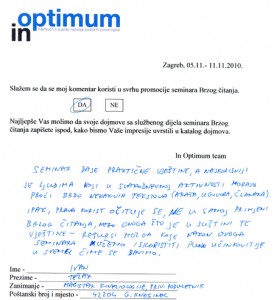 in optimum
Zagreb, 05.11.- 11.11.2010.
Slažem se da se moj komentar koristi u svrhu promocije seminara Brzog čitanja.
DA NE
Najljepše Vas molimo da svoje dojmove sa službenog dijela seminara Brzog
čitanja zapišete ispod, kako bismo Vaše impresije uvrstili u katalog dojmova.
In Optimum team
SEMINAR DAJE PRAKTIČNE VJEŠTINE, A NAJKORISNIJI
JE LJUDIMA KOJI U SVAKODNEVNOJ AKTIVNOSTI MORAJU
PROĆI BRDO NEKAKVIH TEKSTOVA (UGOVORA, ČLANAKA)
IPAK, PRAVA KORIST OČITUJE SE, NE U SAMOJ PRIMJENI
BRZOG ČITANJA, NEGO ONOGA ŠTO JE U SUŠTINI TE
VJEŠTINE - RESURSI MOZGA KOJE NAKON OVOGA
SEMINARA MOŽEMO ISKORISTITI PUNO UČINKOVITIJE
U SMJERU ČIME SE BAVIMO.
Ime: IVAN
Prezime:
Zanimanje: MAGISTAR KINEZIOLOGIJE,
Poštanski broj i mjesto: G. KNEGINEC